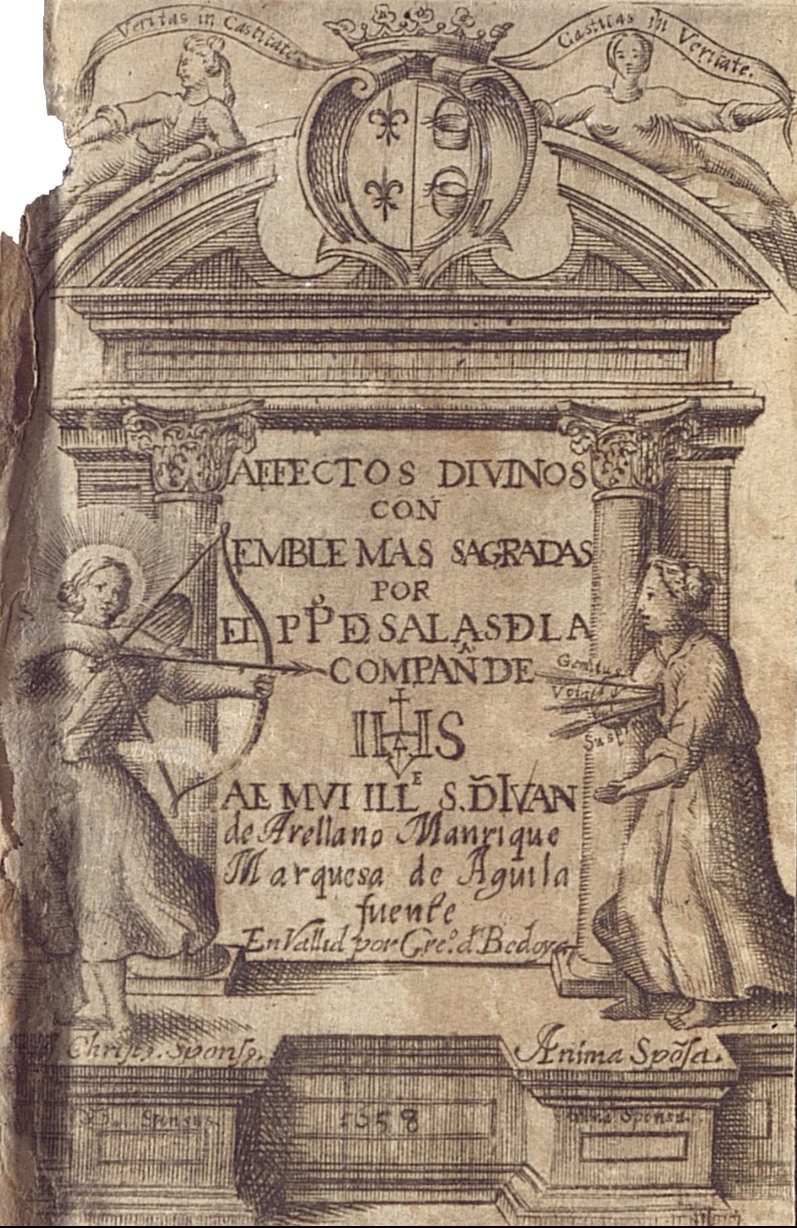 Veritas in Castitate.
Castitas in Veritate.
AFFECTOS DIVINOS
CON
EMBLEMAS SAGRADAS
POR
EL P Pº DE SALAS DE LA
COMPAÑA DE
IHS
AL MVI ILLE S. D IVAN
de Arellano Manrique
Marquesa de Aguila
fuente
En Vallid por Greº. d Bedoya
Gemitus
Vota
Christ9. Spons9.
Anima Spõsa.
Sponsus.
Sponsa.
1658